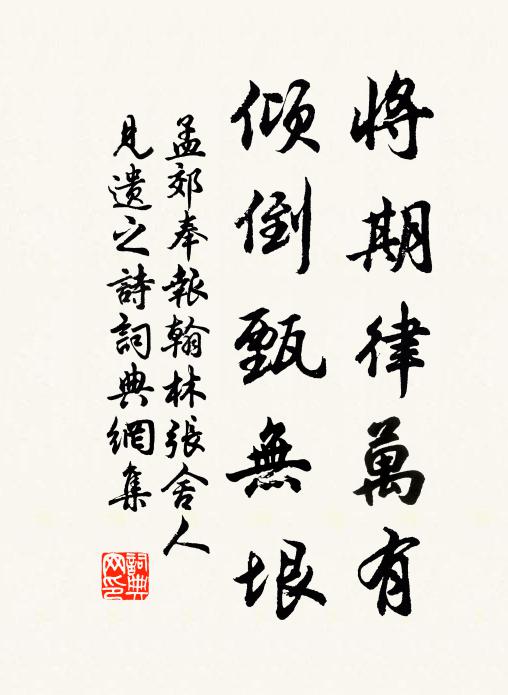 將期律萬有
傾倒甄無垠
孟郊奉報翰林張舍人
見遺之詩詞典網集
詞典
网印